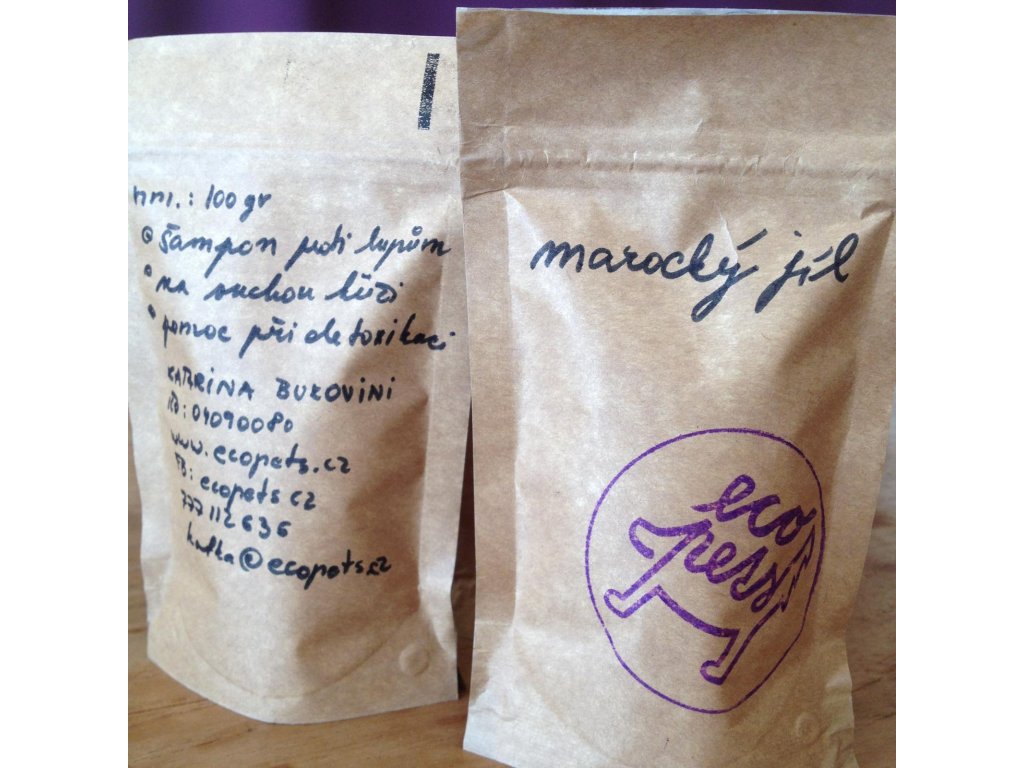 hm.: 100gr
šampon proti lupům
na suchou kůži
pomoc při detoxikaci
KATRINA BUKOVINI
IČ: 04090080
www.ecopets.cz
FB: ecopets cz
777112636
katka@ecopets.cz
marocký jíl
eco
pess